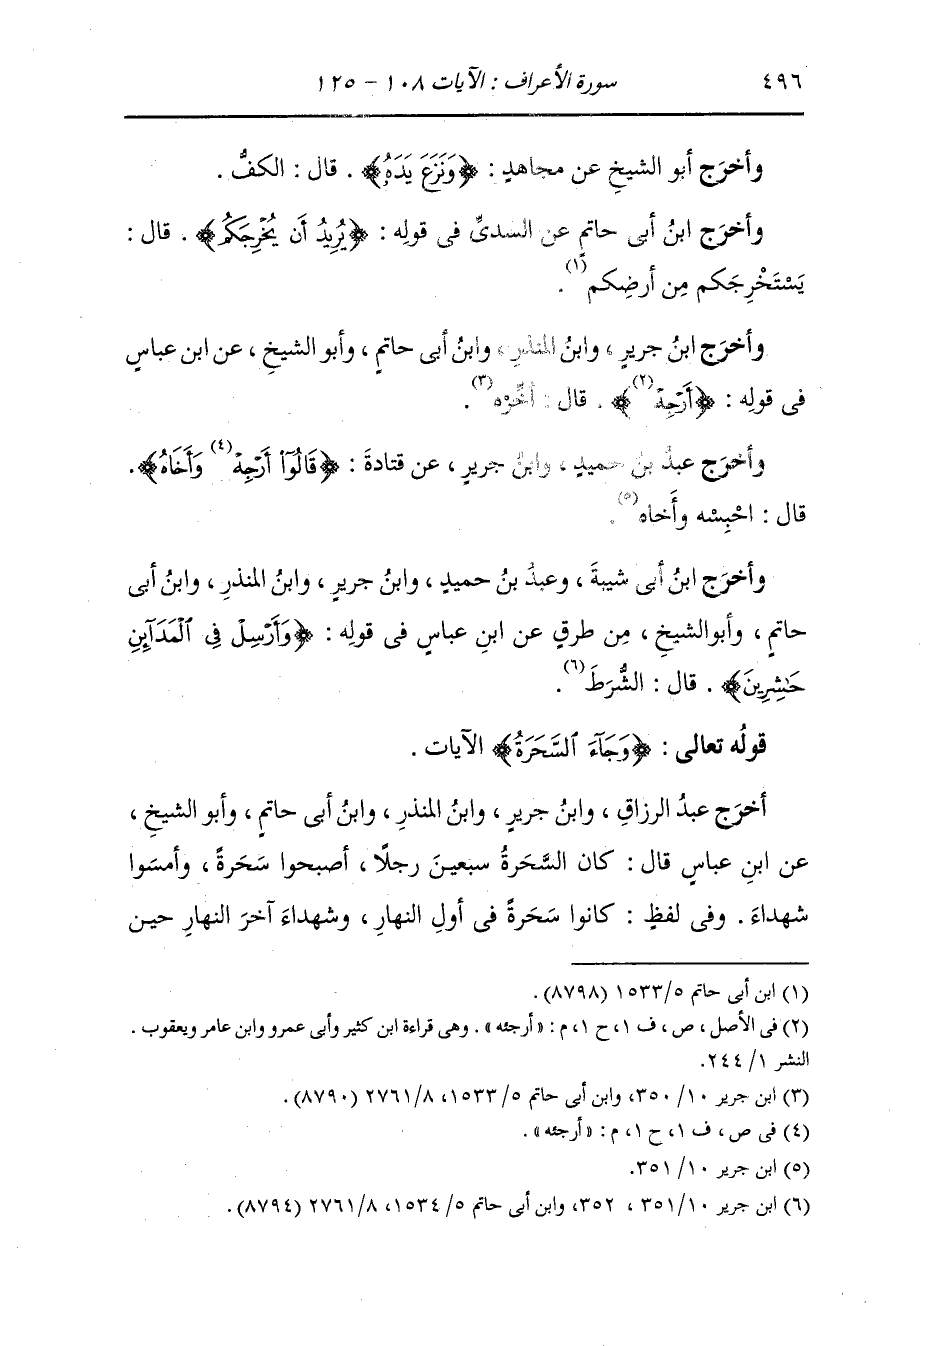 ٤٩٦ سورة الأعراف : الآيات ١٠٨ - ١٢٥
وأخرَج أبو الشيخِ عن مجاهدٍ : ﴿وَنَزَعَ يَدَهُ﴾ . قال : الكفُّ .
وأخرَج ابنُ أبى حاتمٍ عن السدىِّ فى قولِه : ﴿يُرِيدُ أَن يُخْرِجَكُم﴾ . قال :
يَسْتَخْرِجَكم مِن أرضِكم(١) .
وأخرَج ابنُ جريرٍ ، وابنُ المنذرِ ، وابنُ أبى حاتمٍ ، وأبو الشيخِ ، عن ابن عباسٍ
فى قولِه : ﴿أَرْجِهْ(٢)﴾ . قال : أَخِّرْه(٣) .
وأخرَج عبدُ بنُ حميدٍ ، وابنُ جريرٍ ، عن قتادةَ : ﴿قَالُوٓا۟ أَرْجِهْ(٤) وَأَخَاهُ﴾ .
قال : احْبِسْه وأَخاه(٥) .
وأخرَج ابنُ أبى شيبةَ ، وعبدُ بنُ حميدٍ ، وابنُ جريرٍ ، وابنُ المنذرِ ، وابنُ أبى
حاتمٍ ، وأبوالشيخِ ، مِن طرقٍ عن ابنِ عباسٍ فى قولِه : ﴿وَأَرْسِلْ فِى ٱلْمَدَآئِنِ
حَٰشِرِينَ﴾ . قال : الشُّرَطَ(٦) .
قولُه تعالى : ﴿وَجَآءَ ٱلسَّحَرَةُ﴾ الآيات .
أخرَج عبدُ الرزاقِ ، وابنُ جريرٍ ، وابنُ المنذرِ ، وابنُ أبى حاتمٍ ، وأبو الشيخِ ،
عن ابنِ عباسٍ قال : كان السَّحَرةُ سبعينَ رجلًا ، أصبحوا سَحَرةً ، وأمسَوا
شهداءَ . وفى لفظٍ : كانوا سَحَرةً فى أولِ النهارِ ، وشهداءَ آخرَ النهارِ حين
(١) ابن أبى حاتم ١٥٣٣/٥ (٨٧٩٨).
(٢) فى الأصل ، ص ، ف ١، ح ١، م : «أرجئه» . وهى قراءة ابن كثير وأبى عمرو وابن عامر ويعقوب .
النشر ١/ ٢٤٤.
(٣) ابن جرير ١٠/ ٣٥٠، وابن أبى حاتم ٥/ ١٥٣٣، ٢٧٦١/٨ (٨٧٩٠).
(٤) فى ص ، ف ١، ح ١، م : «أرجئه» .
(٥) ابن جرير ١٠/ ٣٥١.
(٦) ابن جرير ٣٥١/١٠ ، ٣٥٢، وابن أبى حاتم ٥/ ١٥٣٤، ٢٧٦١/٨ (٨٧٩٤).